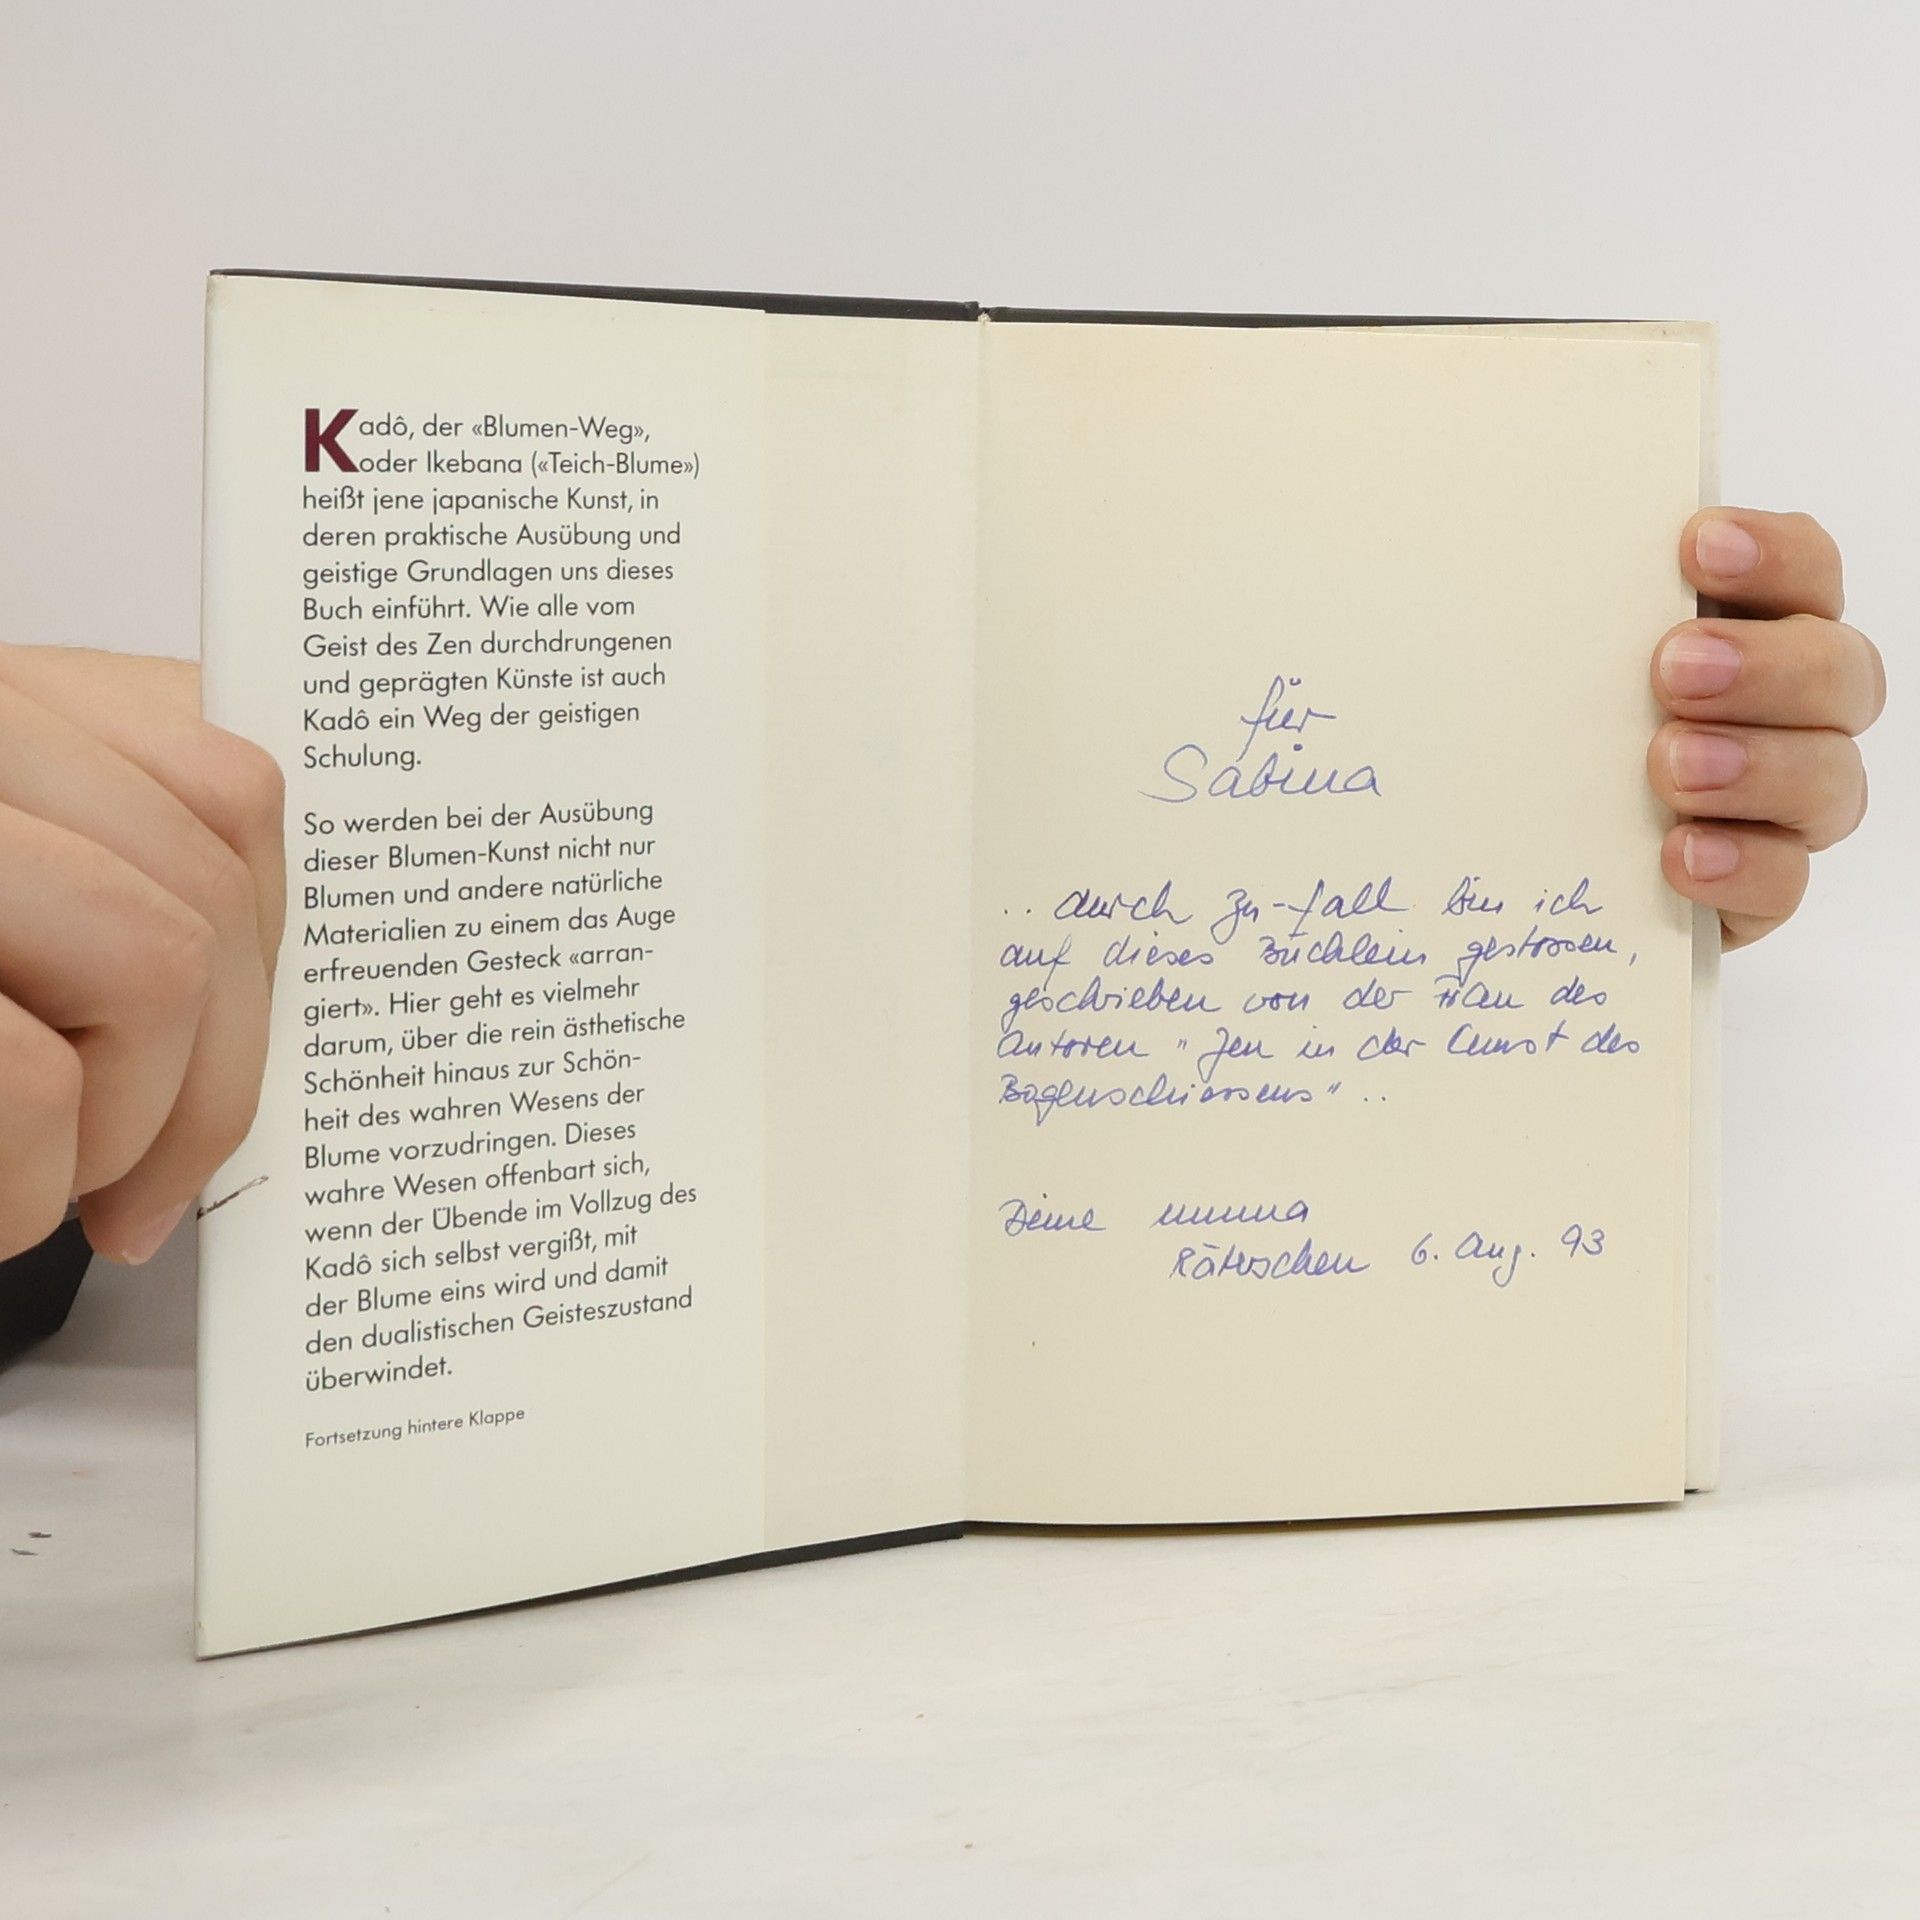 Kadô, der «Blumen-Weg»,
oder Ikebana («Teich-Blume»)
heißt jene japanische Kunst, in
deren praktische Ausübung und
geistige Grundlagen uns dieses
Buch einführt. Wie alle vom
Geist des Zen durchdrungenen
und geprägten Künste ist auch
Kadô ein Weg der geistigen
Schulung.
So werden bei der Ausübung
dieser Blumen-Kunst nicht nur
Blumen und andere natürliche
Materialien zu einem das Auge
erfreuenden Gesteck «arran-
giert». Hier geht es vielmehr
darum, über die rein ästhetische
Schönheit hinaus zur Schön-
heit des wahren Wesens der
Blume vorzudringen. Dieses
wahre Wesen offenbart sich,
wenn der Übende im Vollzug des
Kadô sich selbst vergißt, mit
der Blume eins wird und damit
den dualistischen Geisteszustand
überwindet.
Fortsetzung hintere Klappe
für
Sabina
.. durch Zu-fall bin ich
auf dieses Büchlein gestossen,
geschrieben von der Frau des
Autoren "Zen in der Kunst des
Bogenschiessens" ..
Deine
Räterschen 6. Aug. 93